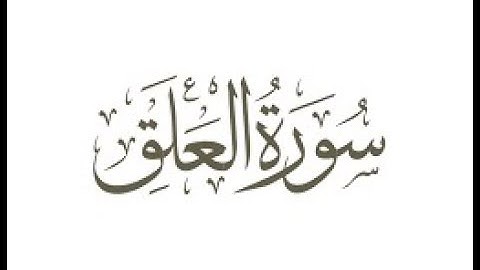 سُورَةُ العَلَقِ